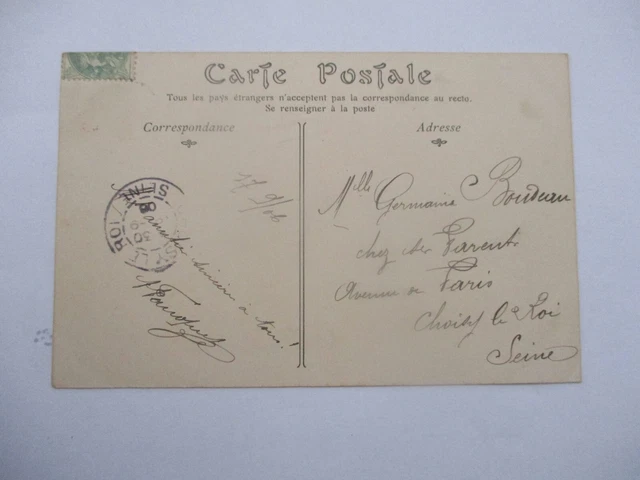 Carte Postale
Tous les pays étrangers n'acceptent pas la correspondance au recto.
Se renseigner à la poste
Correspondance
Adresse
17 9/06
à tous!
Mlle Germaine Boudeau
chez ses Parents
Avenue de Paris
Choisy le Roi
Seine